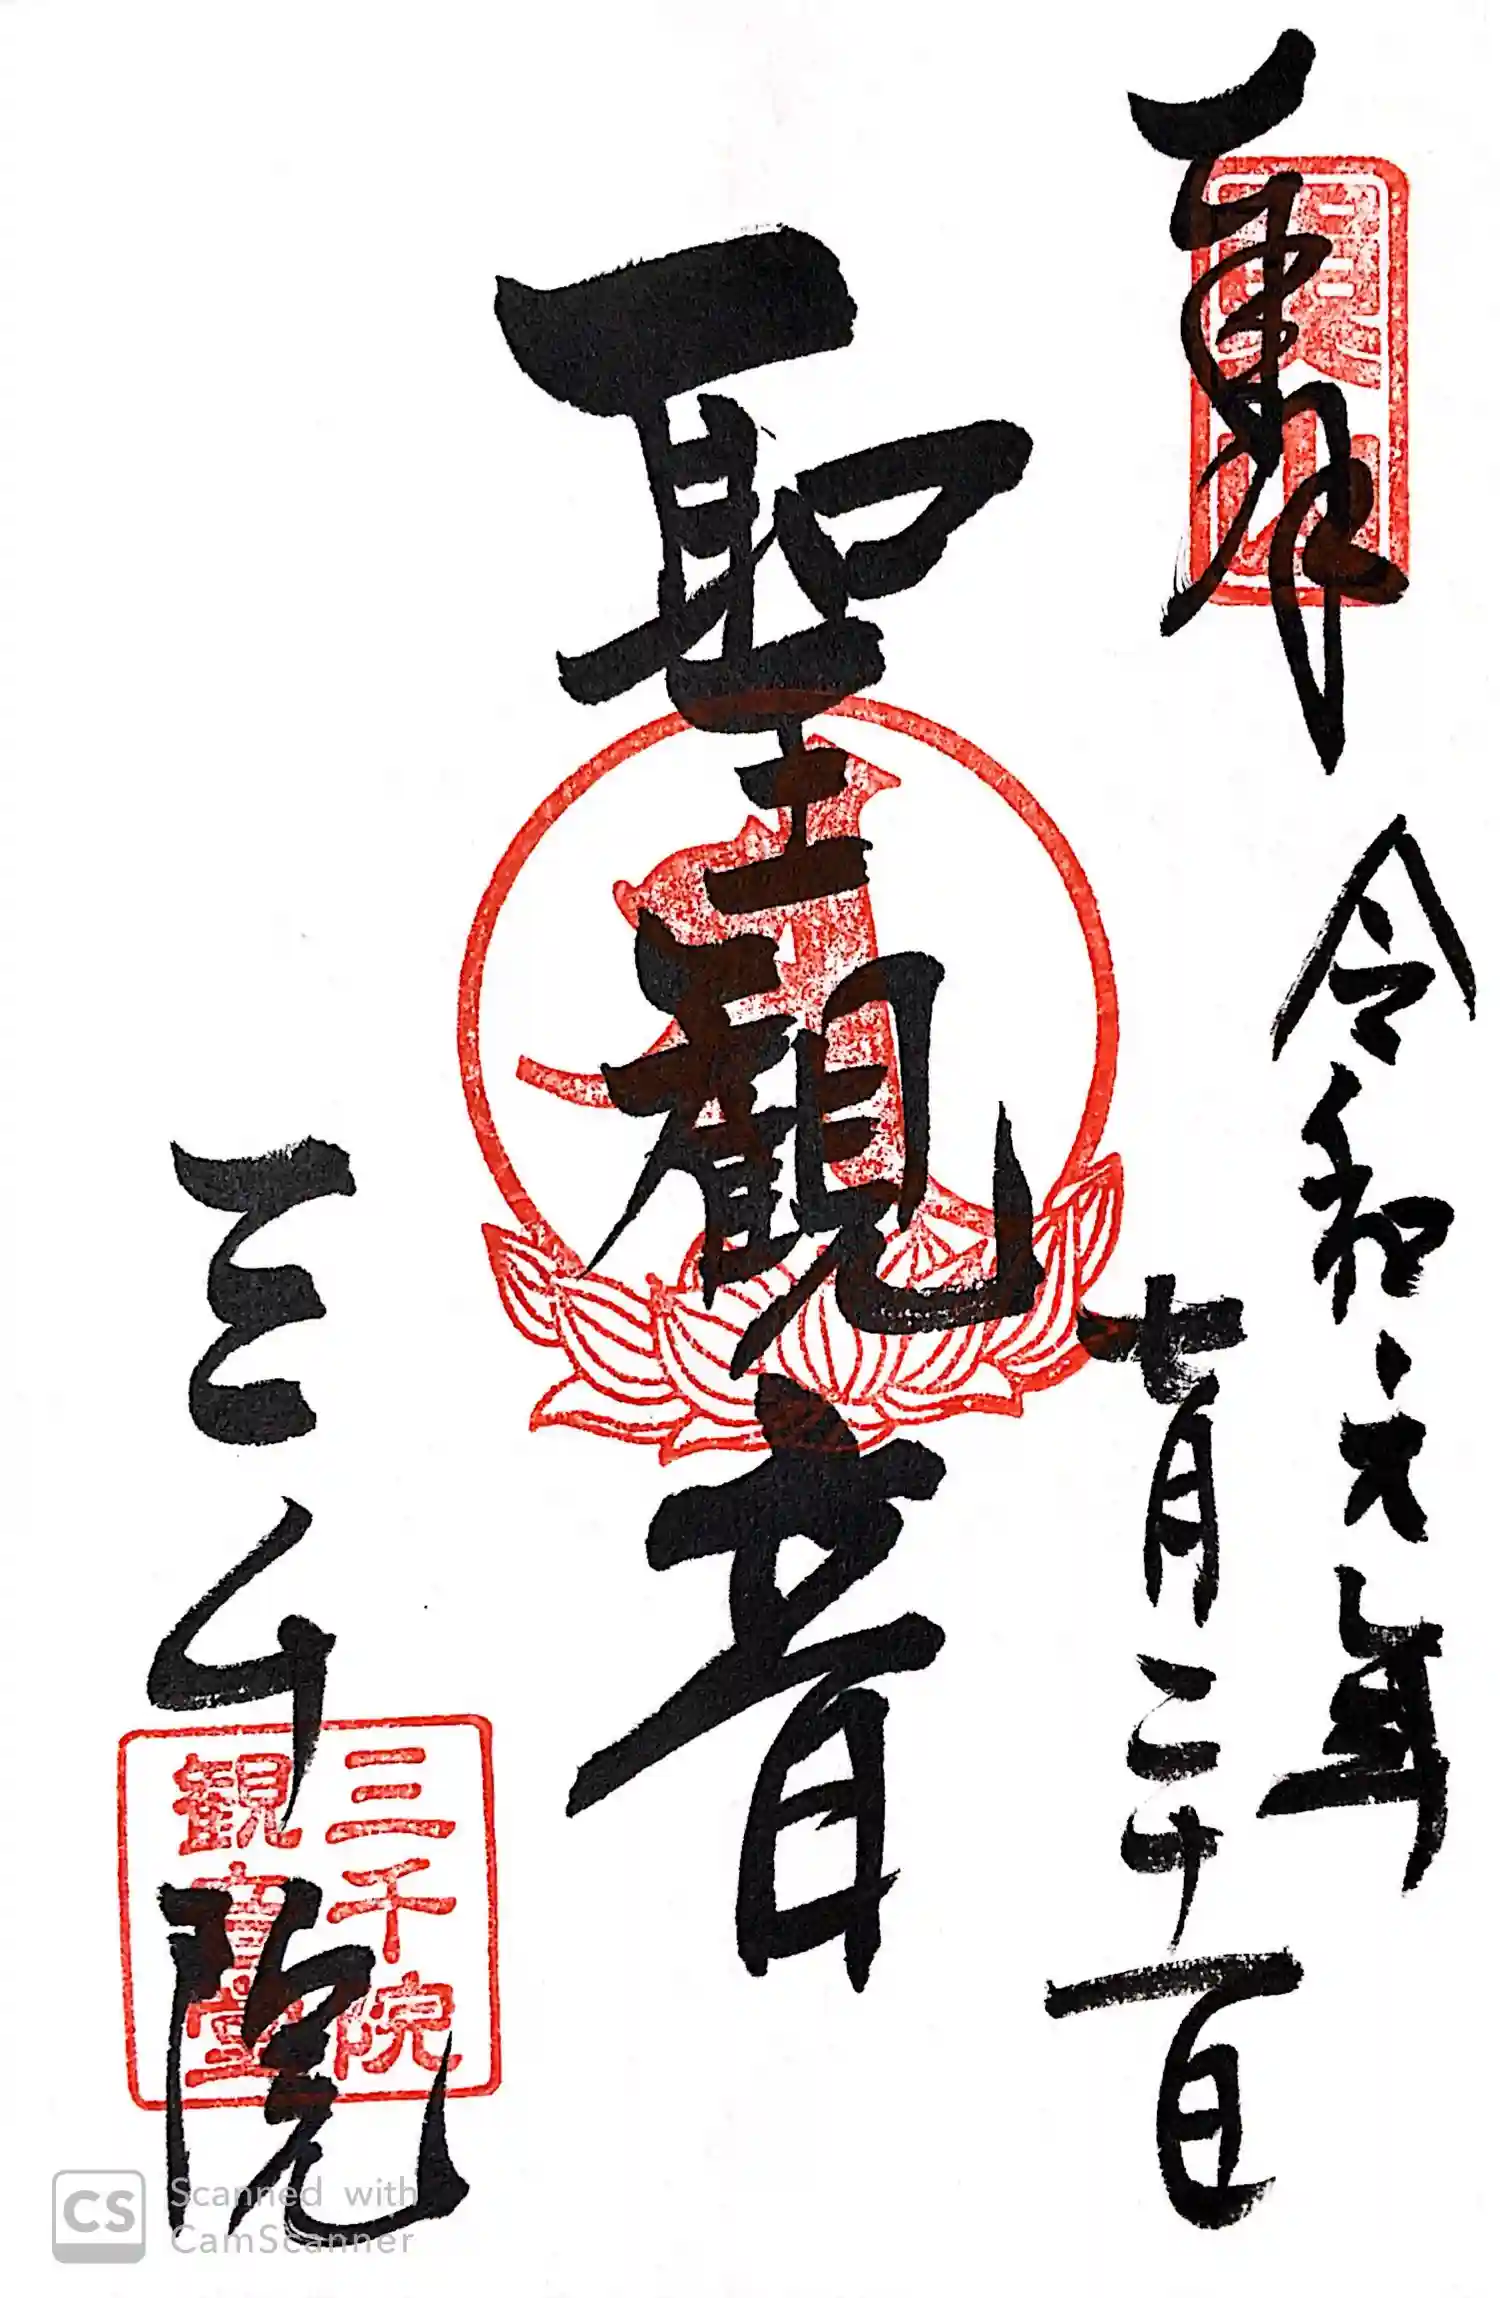 奉拝
令和六年
七月二十一日
聖観音
三千院
三千院
観音堂
CS Scanned with
CamScanner